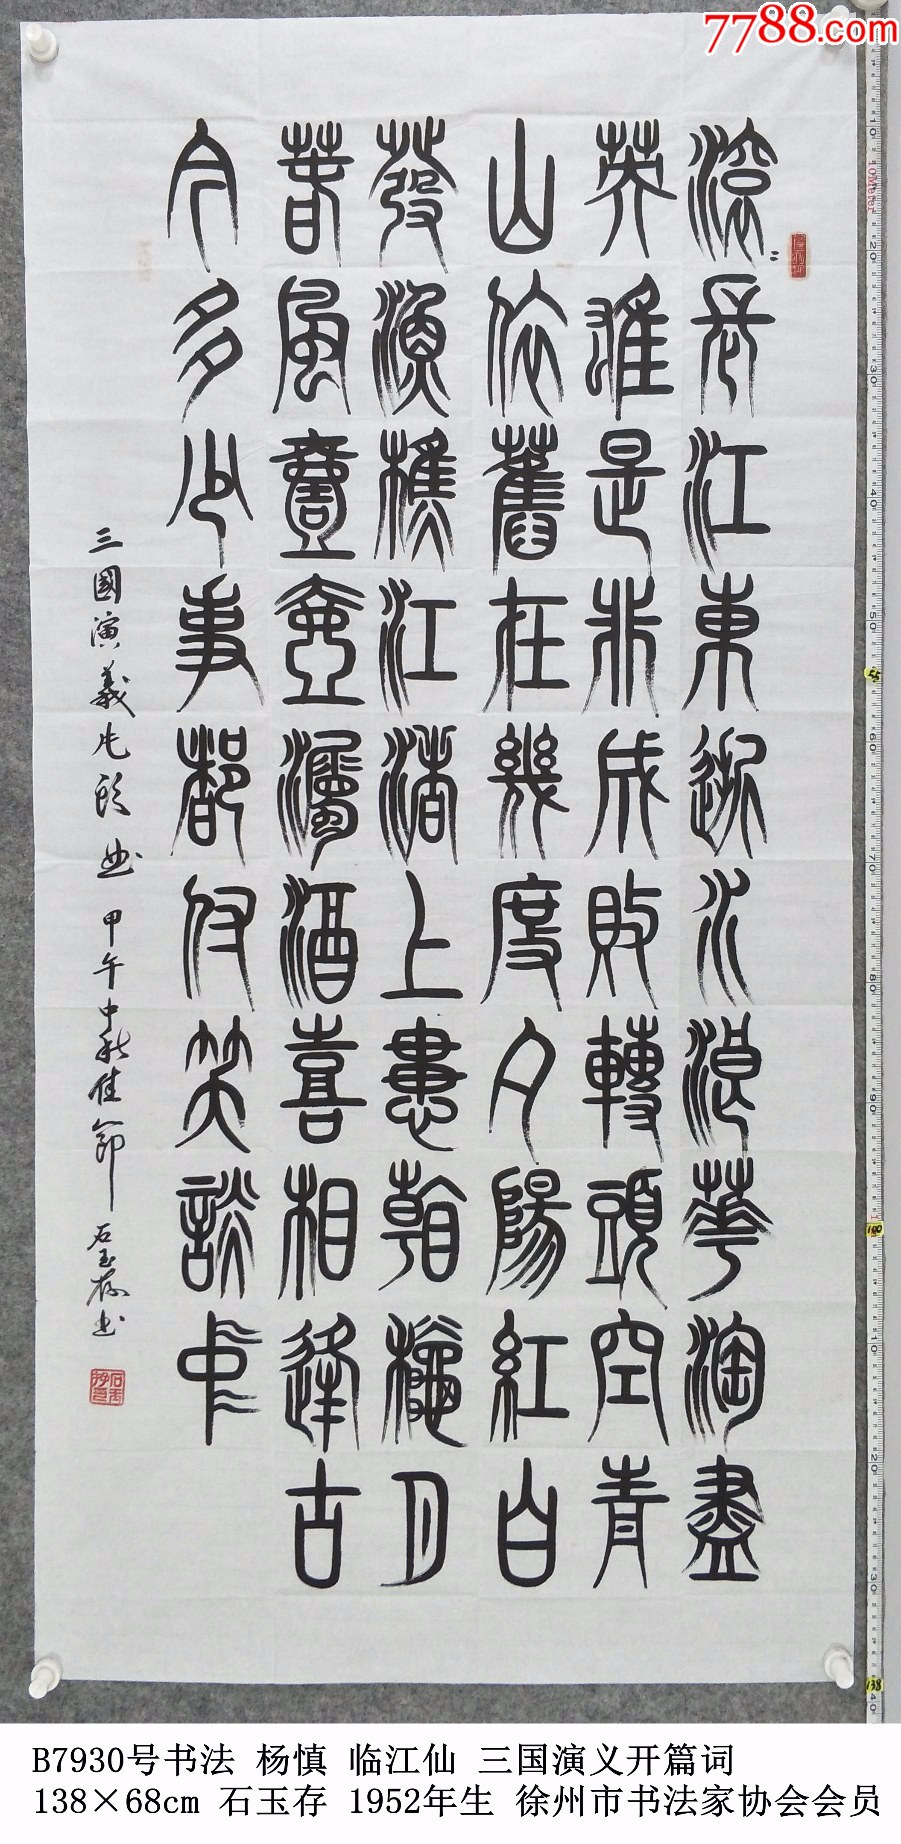 7788.com
滚〻長江東逝水浪華淘盡
英雄是非成敗轉頭空青
山依舊在幾度夕陽紅白
發漁樵江渚上患看秋月
春風壹壺濁酒喜相逢古
今多少事都付笑談中
三國演義片頭曲 甲午中秋佳節 石玉存书
B7930号书法 杨慎 临江仙 三国演义开篇词
138×68cm 石玉存 1952年生 徐州市书法家协会会员